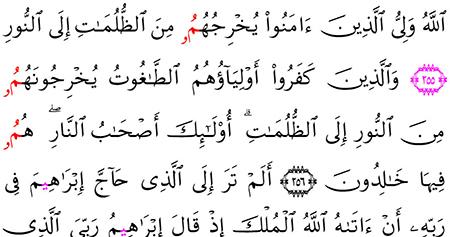 ٱللَّهُ وَلِيُّ ٱلَّذِينَ ءَامَنُواْ يُخْرِجُهُمُۥ مِنَ ٱلظُّلُمَٰتِ إِلَى ٱلنُّورِ
٢٥٥ وَٱلَّذِينَ كَفَرُواْ أَوْلِيَآؤُهُمُ ٱلطَّٰغُوتُ يُخْرِجُونَهُمُۥ
مِنَ ٱلنُّورِ إِلَى ٱلظُّلُمَٰتِۗ أُوْلَٰٓئِكَ أَصْحَٰبُ ٱلنَّارِۖ هُمُۥ
فِيهَا خَٰلِدُونَ ٢٥٦ أَلَمْ تَرَ إِلَى ٱلَّذِى حَآجَّ إِبْرَٰهِيمَ فِى
رَبِّهِۦٓ أَنْ ءَاتَىٰهُ ٱللَّهُ ٱلْمُلْكَ إِذْ قَالَ إِبْرَٰهِيمُ رَبِّىَ ٱلَّذِى